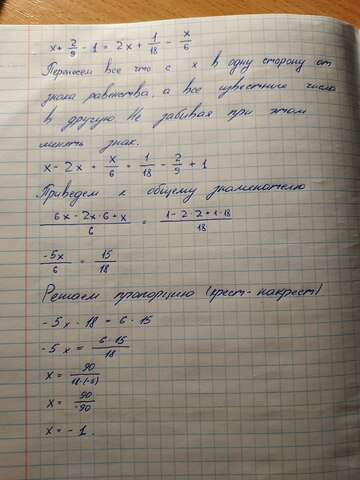 x + 2/9 - 1 = 2x + 1/18 - x/6
Перенесем все что с x в одну сторону от
знака равенства, а все известные числа
в другую. Не забывая при этом
менять знак.
x - 2x + x/6 = 1/18 - 2/9 + 1
Приведем к общему знаменателю
(6x - 2x·6 + x)/6 = (1 - 2·2 + 1·18)/18
-5x/6 = 15/18
Решаем пропорцию (крест-накрест)
-5x · 18 = 6 · 15
-5x = 6·15/18
x = 90/(18·(-5))
x = 90/-90
x = -1.